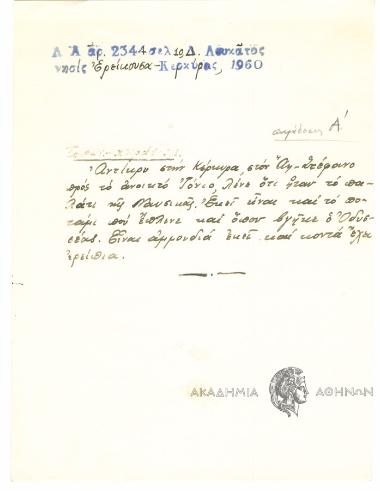 Λ. Α ἀρ. 2344 σελ 19 Δ. Λουκᾶτος
νησίς Ἐρείκουσα-Κερκύρας, 1960
παράδοση Α΄
Ἀντίκρυ στὴν Κέρκυρα, στὸν Ἁη-Στέφανο
πρὸς τὸ ἀνοικτὸ Ἰόνιο, λένε ὅτι ἦταν τὸ πα-
λάτι τῆς Ναυσικᾶς. Ἐκεῖ εἶναι καὶ τὸ πο-
τάμι ποὺ ἔπλυνε καὶ ὅπου βγῆκε ὁ Ὀδυσ-
σέας. Εἶναι ἀμμουδιά ἐκεῖ καὶ κοντά ἔχει
ἐρείπια.
ΑΚΑΔΗΜΙΑ ΑΘΗΝΩΝ